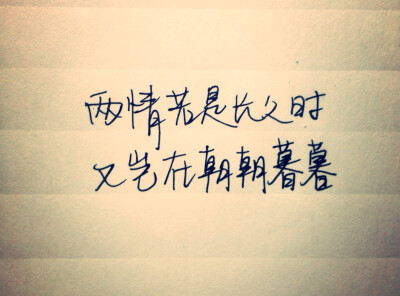 两情若是长久时
又岂在朝朝暮暮